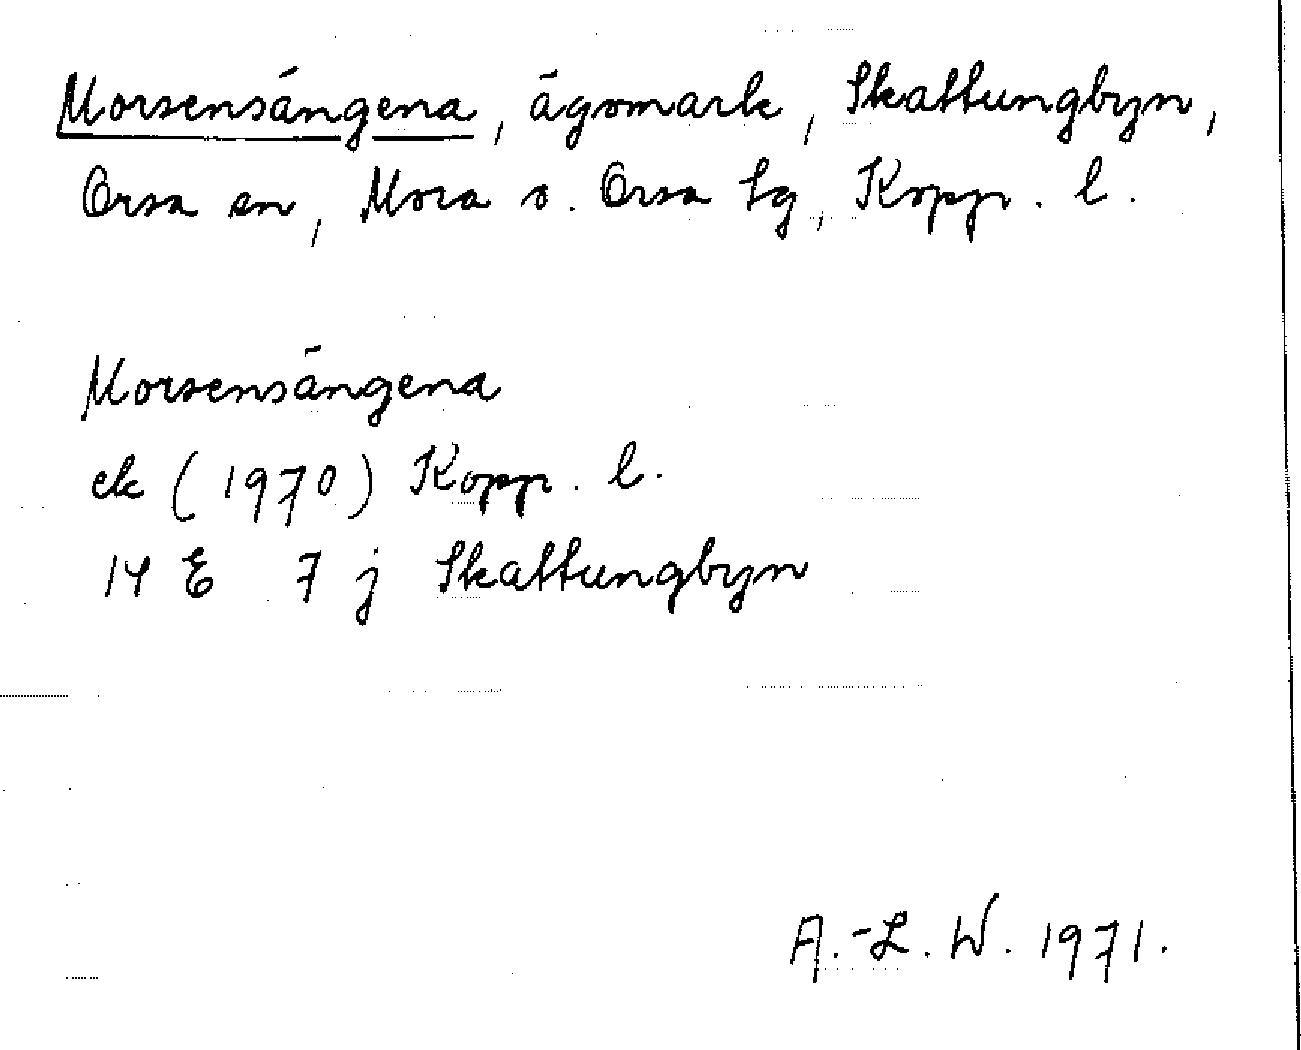 Morsensängena, ägomark, Skattungbyn,
Orsa sn, Mora o. Orsa tg, Kopp. l.
Morsensängena
ek (1970) Kopp. l.
14 E 7 j Skattungbyn
A.-L. W. 1971.